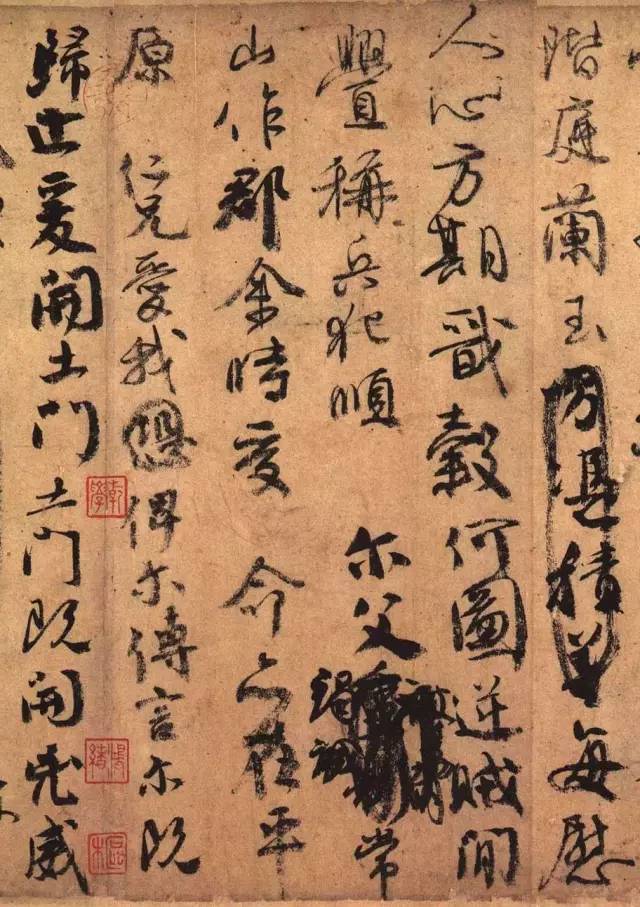 階庭蘭玉方憑積善每慰
人心方期戩穀何圖逆賊閒
舋稱兵犯順尔父竭誠常
山作郡余時受命亦在平
原仁兄愛我恐俾尔傳言尔既
歸止爰開土門土門既開凶威